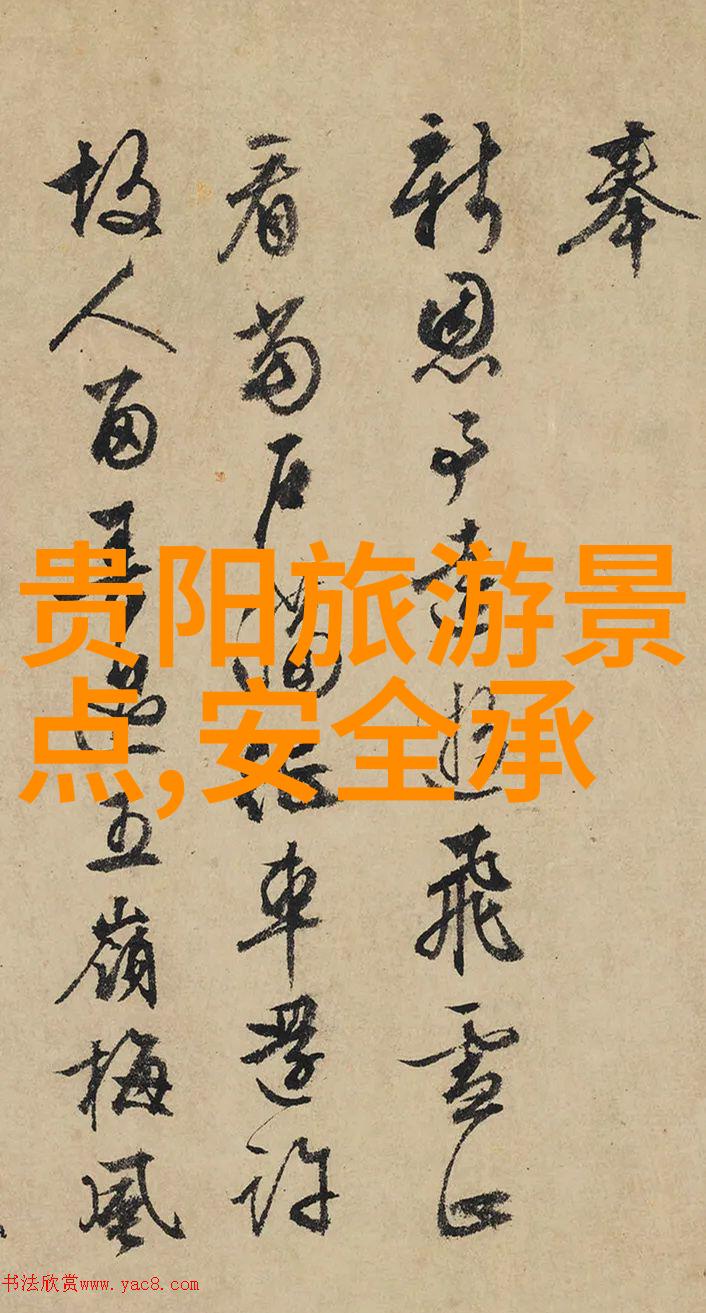 奉
新恩予飛雪正
看車還許
故人留五嶺梅風
贵阳旅游景
点,安全承
书法欣赏www.yac8.com